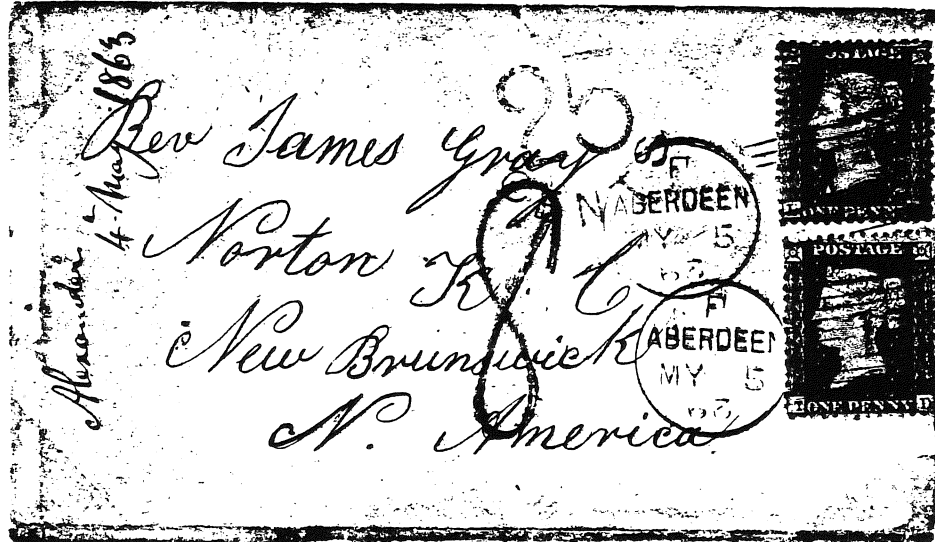 4 May 1863
25
Rev James Gray
Norton K. C.
New Brunswick
N. America
8
F
ABERDEEN
MY 5
63
F
ABERDEEN
MY 5
63
POSTAGE
ONE PENNY
POSTAGE
ONE PENNY